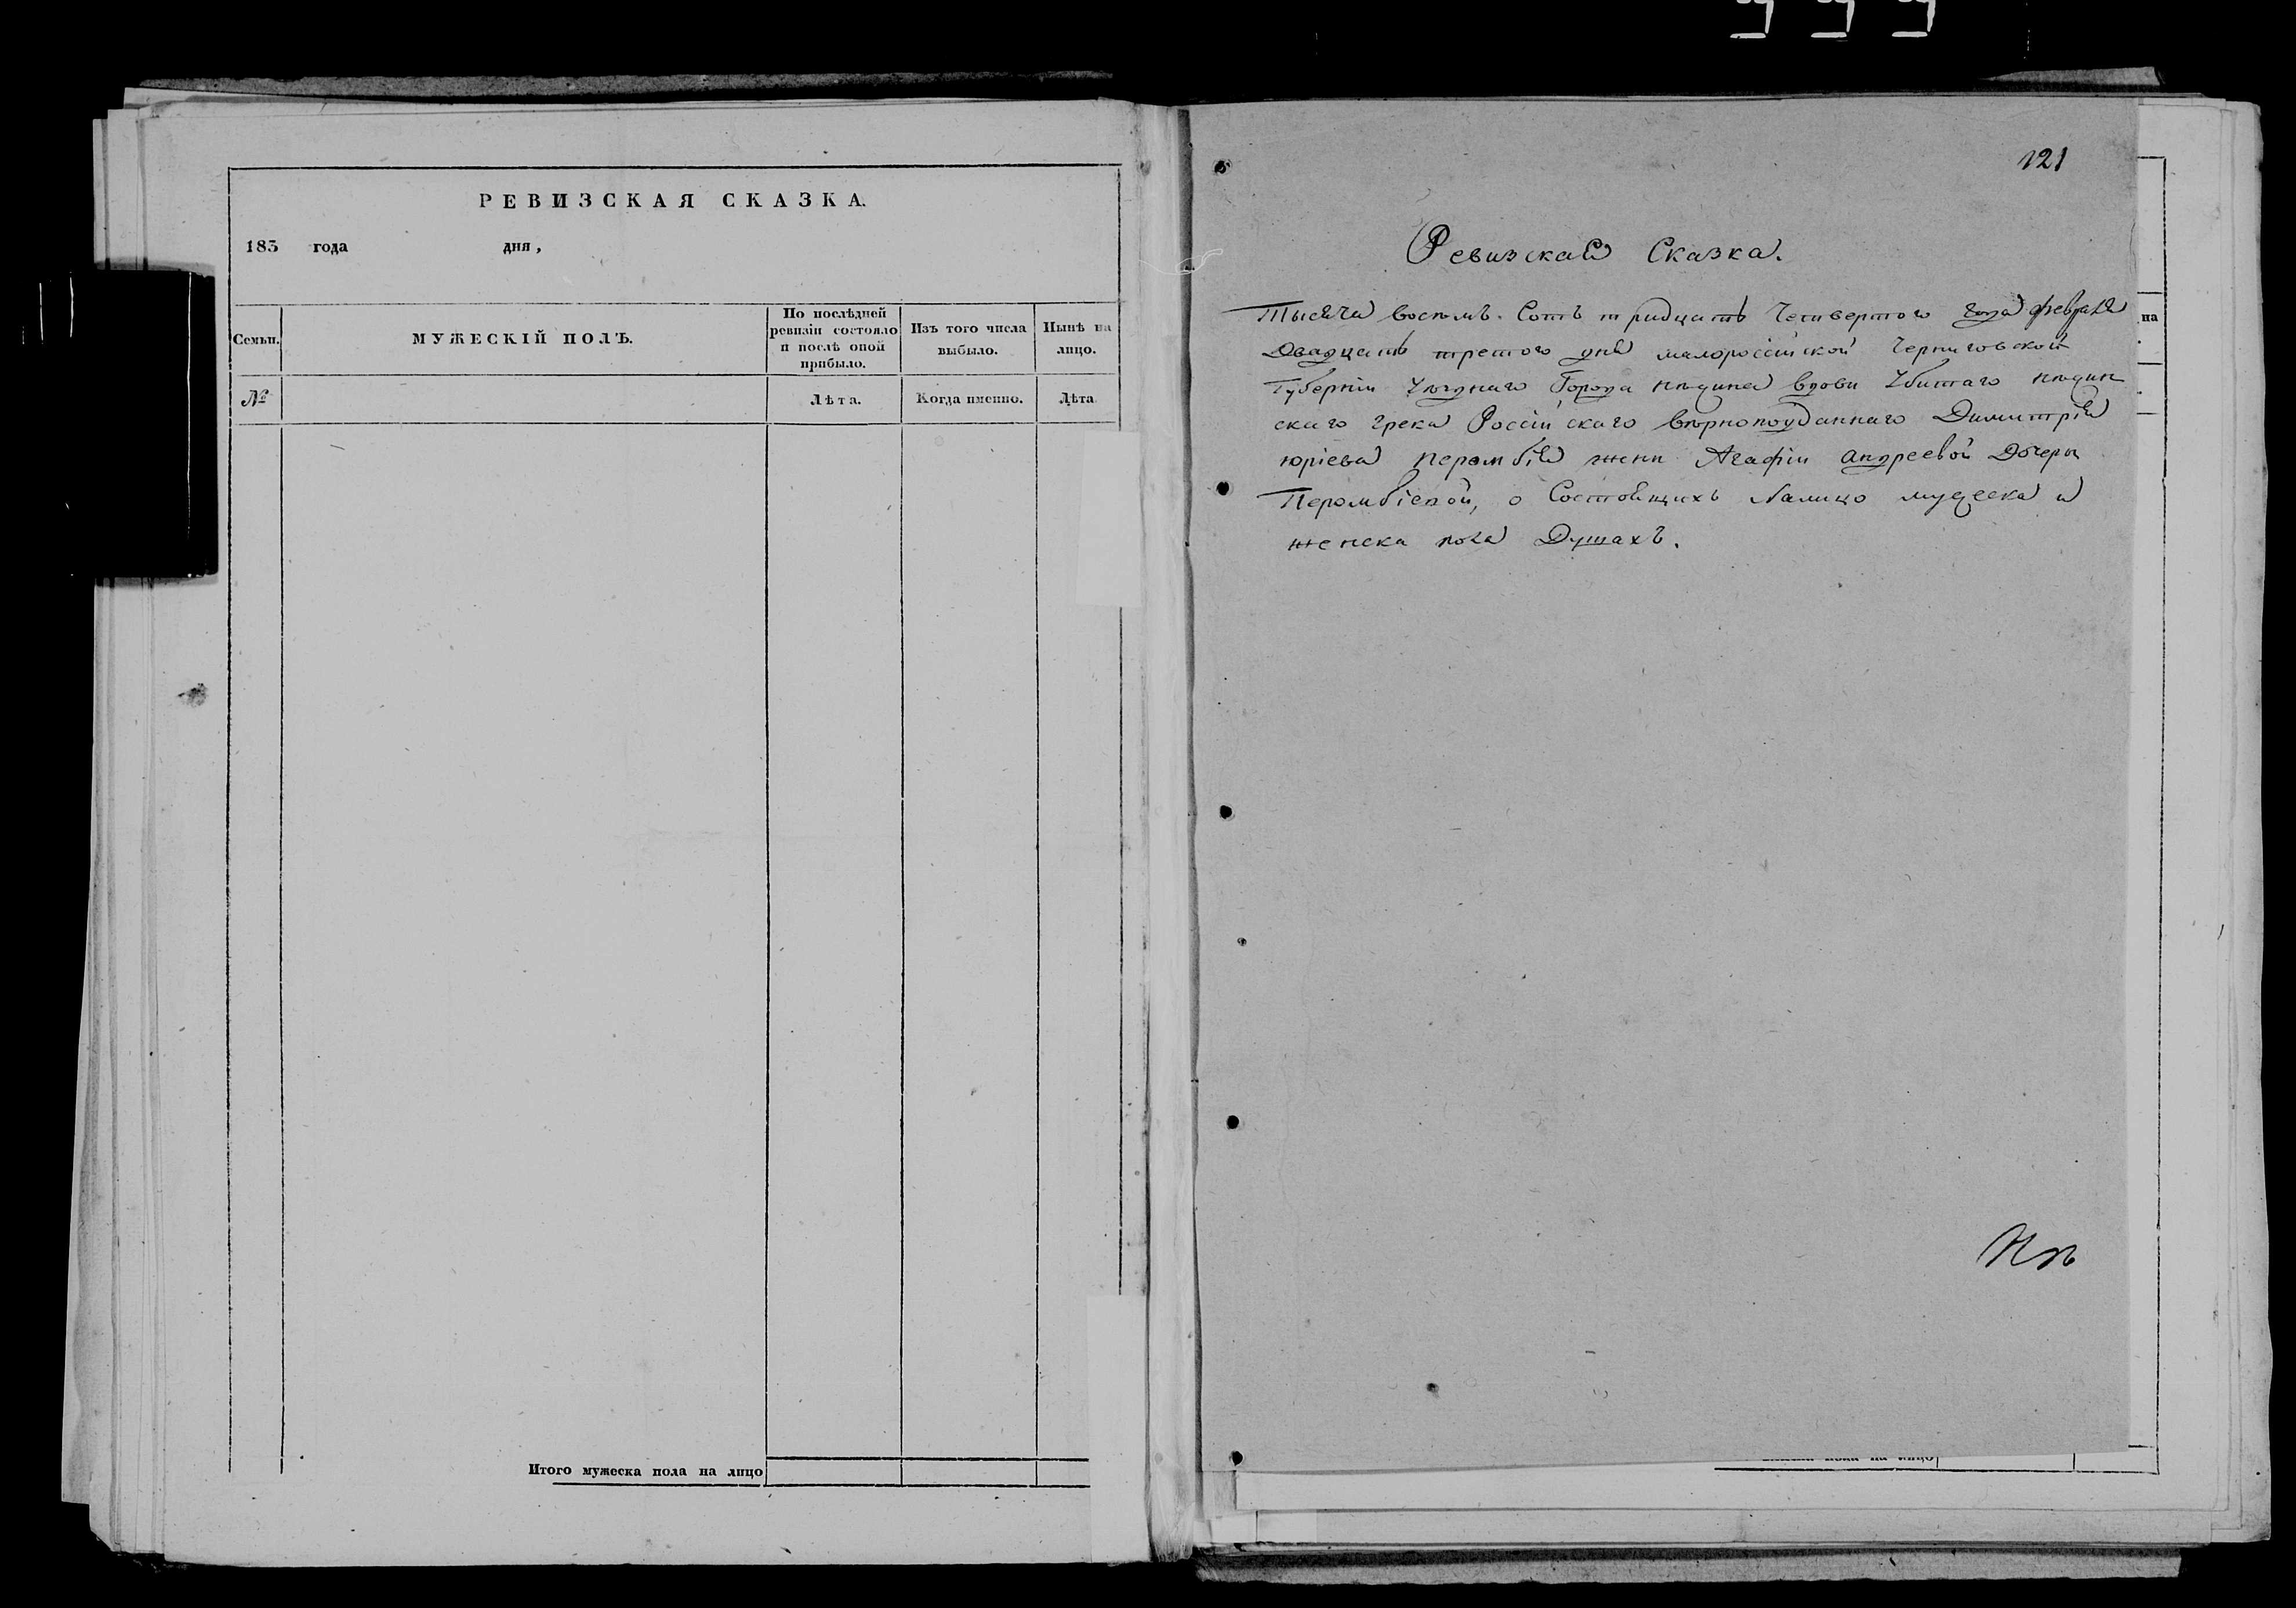 РЕВИЗСКАЯ СКАЗКА.
183 года дня,
Семьи.
МУЖЕСКІЙ ПОЛЪ.
По послѣдней
ревизіи состояло
и послѣ оной
прибыло.
Изъ того числа
выбыло.
Нынѣ на
лицо.
№
Лѣта.
Когда именно.
Лѣта
Итого мужеска пола на лицо
121
Ревизская Сказка.
Тысяча восемъ Сотъ тридцать Четвертого года февраля
Двадцать третого дня малороссійской Черниговской
Губерніи Уезднаго Города нѣжина вдови Убитаго нѣжин
скаго грека Россійскаго вѣрноподданнаго Димитрія
юріева жени Агафіи андреевой Дочери
о Состоящихъ Налицо мужеска и
женска пола Душахъ.
на